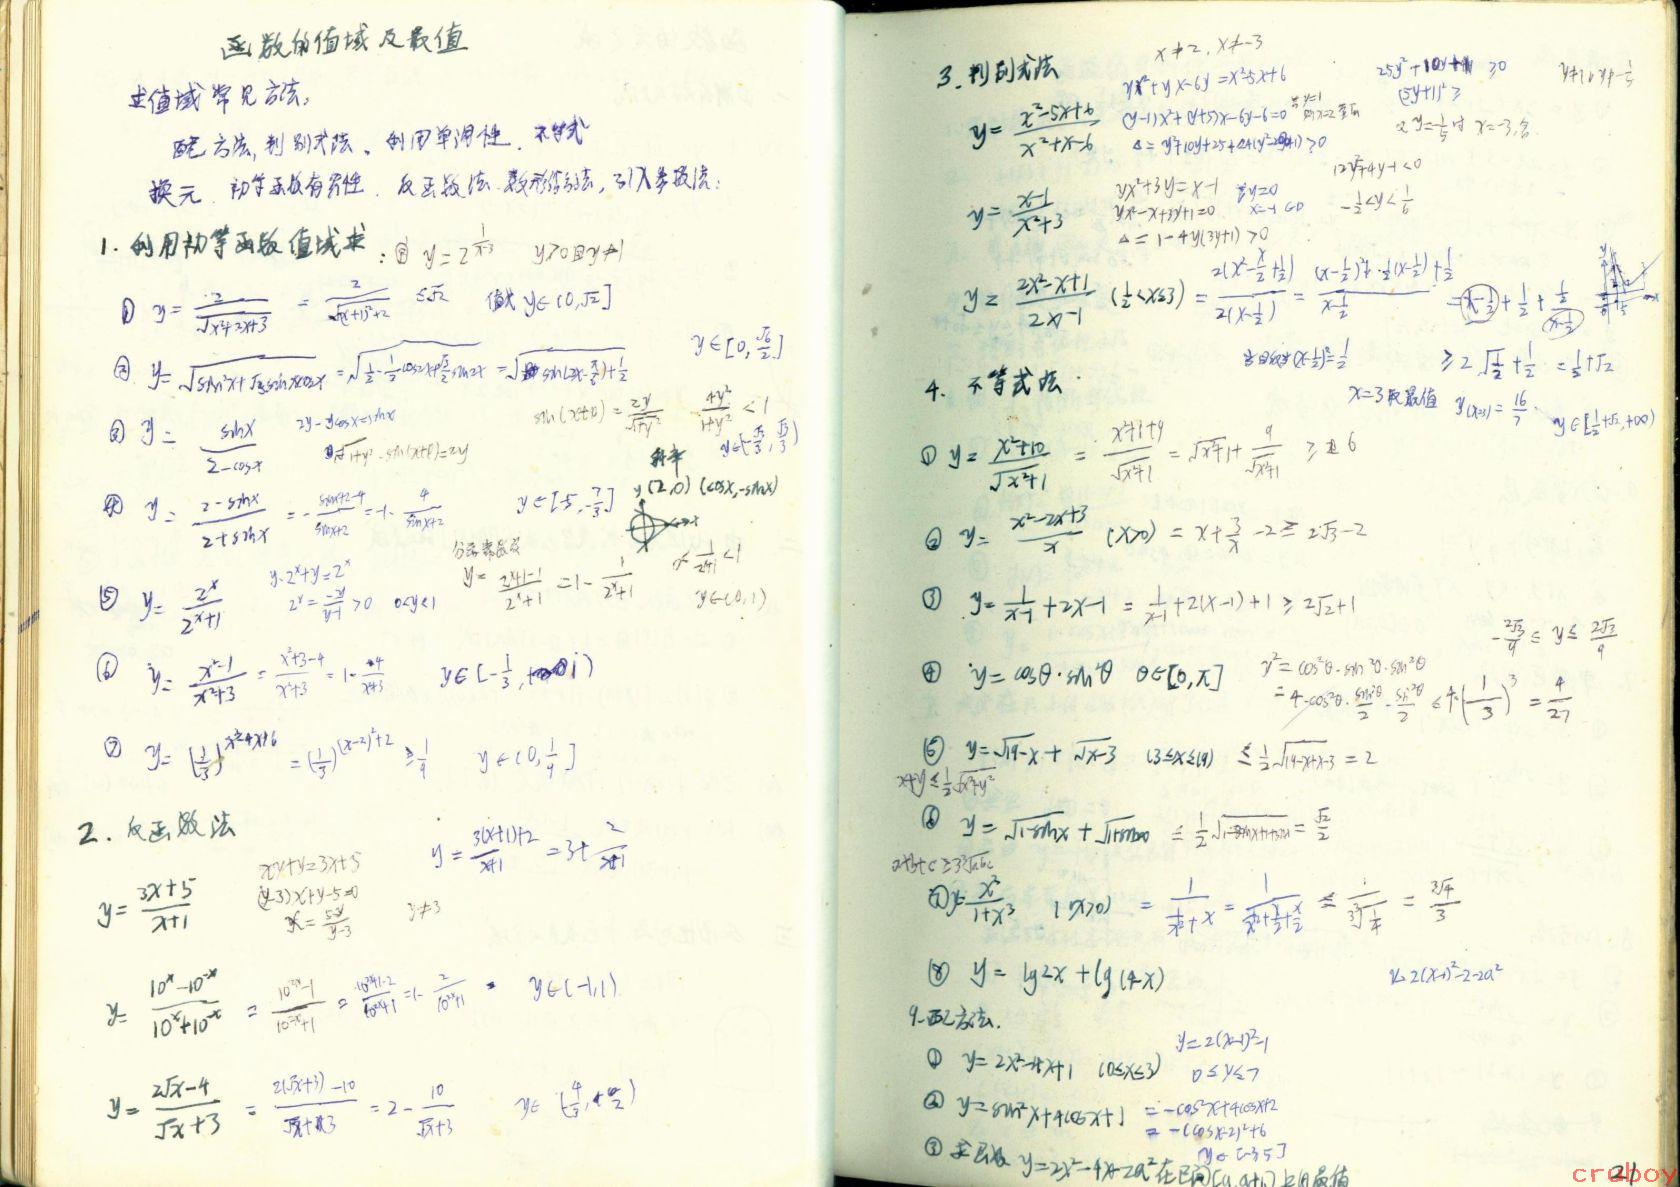 函数的值域及最值
求值域常见方法:
配方法,判别式法、利用单调性、不等式
换元、初等函数有界性、反函数法、数形结合法,引入参数法:
1. 利用初等函数值域求: y=2^{1/(x-3)} y>0且y≠1
① y=2/√(x²+2x+3) = 2/√((x+1)²+2) ≤√2 值域 y∈(0,√2]
② y=√(sin²x+√3sinxcosx) = √(1/2-1/2cos2x+√3/2sin2x) = √(sin(2x-π/6)+1/2) y∈[0,√6/2]
③ y=sinx/(2-cosx) 2y-ycosx=sinx
√(1+y²)·sin(x+θ)=2y
sin(x+θ)=2y/√(1+y²) 4y²/(1+y²)<1
y∈[-√3/3,√3/3)
斜率
(2,0) (cosx,-sinx)
④ y=(2-sinx)/(2+sinx) = -(sinx+2-4)/(sinx+2) = -1-4/(sinx+2) y∈[-5,-7/3]
分离常数法
⑤ y=2^x/(2^x+1) y·2^x+y=2^x
2^x=-y/(y-1)>0 0<y<1
y=(2^x+1-1)/(2^x+1) =1-1/(2^x+1)
y∈(0,1)
⑥ y=(x²-1)/(x²+3) =(x²+3-4)/(x²+3) =1-4/(x²+3) y∈[-1/3,1)
⑦ y=(1/3)^{x²-4x+6} =(1/3)^{(x-2)²+2} ≥1/9 y∈(0,1/9]
2. 反函数法
y=(3x+5)/(x+1) xy+y=3x+5
(y-3)x+y-5=0
y≠3
y=(3(x+1)+2)/(x+1) =3+2/(x+1)
y=(10^x-10^{-x})/(10^x+10^{-x}) =(10^{2x}-1)/(10^{2x}+1) =(10^{2x}+1-2)/(10^{2x}+1) =1-2/(10^{2x}+1) y∈(-1,1)
y=(2√x-4)/(√x+3) =(2(√x+3)-10)/(√x+3) =2-10/(√x+3)
3. 判别式法 x≠2, x≠-3
y=(x²-5x+6)/(x²+x-6) yx²+yx-6y=x²-5x+6
(y-1)x²+(y+5)x-6y-6=0
25y²+10y+1≥0
(5y+1)²≥
y=(x-1)/(x²+3) yx²+3y=x-1
yx²-x+3y+1=0
△=1-4y(3y+1)>0
12y²+4y-1<0
-1/2<y<1/6
y=(2x²-x+1)/(2x-1) (1/2<x≤3) =2(x²-x/2+1/2)/2(x-1/2) = x-1/2+1/2+(1/2)/(x-1/2)
≥2√(1/2)+1/2 =1/2+√2
x=3取最值 y(x=3)=16/7 y∈[1/2+√2,+∞)
4. 不等式法
① y=(x²+10)/√(x²+1) =(x²+1+9)/√(x²+1) =√(x²+1)+9/√(x²+1) ≥6
② y=(x²-2x+3)/x (x>0) =x+3/x-2≥2√3-2
③ y=1/(x-1)+2x-1 =1/(x-1)+2(x-1)+1≥2√2+1
-2√3/9≤y≤2√3/9
④ y=cosθ·sin²θ θ∈[0,π] y²=cos²θ·sin²θ·sin²θ
=4·cos²θ·sin²θ/2·sin²θ/2≤4·(1/3)³=4/27
⑤ y=√(19-x)+√(x-3) (3≤x≤19) ≤1/2√(19-x+x-3)=2
x+y≤1/2√(x²+y²)
⑥ y=√(1-sinx)+√(1+sinx) ≤1/2√(1-sinx+1+sinx)=√2/2
a+b+c≥3∛abc
⑦ y=x²/(1+x³) (x>0) =1/(1/x²+x) =1/(1/x²+x/2+x/2) ≤1/(3∛(1/4)) =∛4/3
⑧ y=lg2x+lg(4-x)
9. 配方法.
2(x-1)²-2-2a²
① y=2x²-4x+1 (0≤x≤3) y=2(x-1)²-1
0≤y≤7
② y=sin²x+4cosx+1 =-cos²x+4cosx+2
=-(cosx-2)²+6
y∈[-3,5]
③ 求函数 y=2x²-4x-2a²在区间[a,a+1]上的最值
21
cruboy